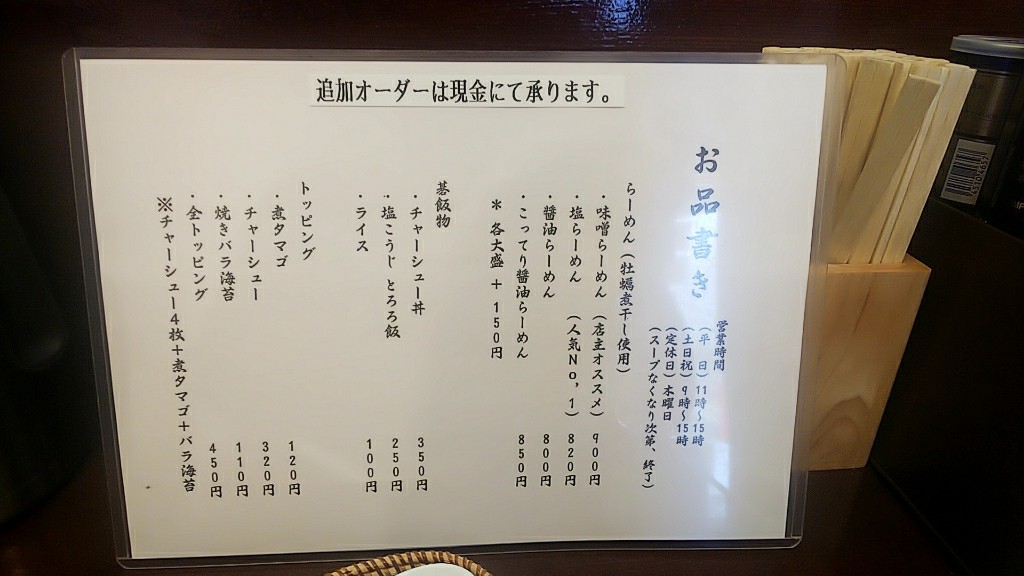 追加オーダーは現金にて承ります。
お品書き
営業時間
(平　日) 11時～15時
(土日祝) 9時～15時
(定休日) 木曜日
(スープなくなり次第、終了)
らーめん(牡蠣煮干し使用)
・味噌らーめん (店主オススメ) 900円
・塩らーめん (人気No,1) 820円
・醤油らーめん 800円
・こってり醤油らーめん 850円
＊ 各大盛 ＋ 150円
碁飯物
・チャーシュー丼 350円
・塩こうじ とろろ飯 250円
・ライス 100円
トッピング
・煮タマゴ 120円
・チャーシュー 320円
・焼きバラ海苔 110円
・全トッピング 450円
※チャーシュー4枚＋煮タマゴ＋バラ海苔